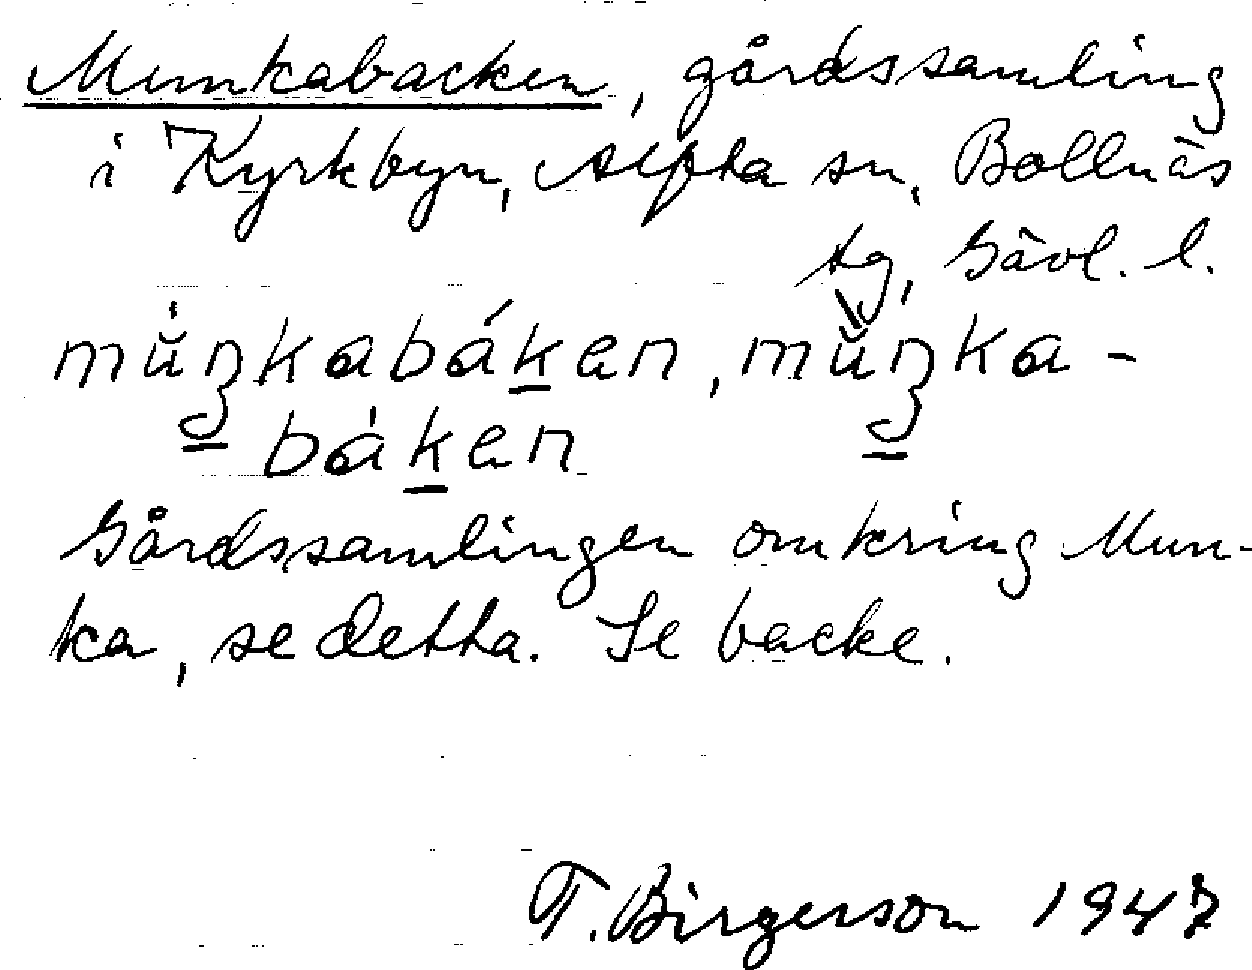 Munkabacken, gårdssamling
i Kyrkbyn, Alfta sn, Bollnäs
tg, Gävl. l.
mu̇̆ŋ̱kabáḵen, mù̆ŋ̱ka-
báḵen
Gårdssamlingen omkring Mun-
ka, se detta. Se backe.
T. Birgerson 1947